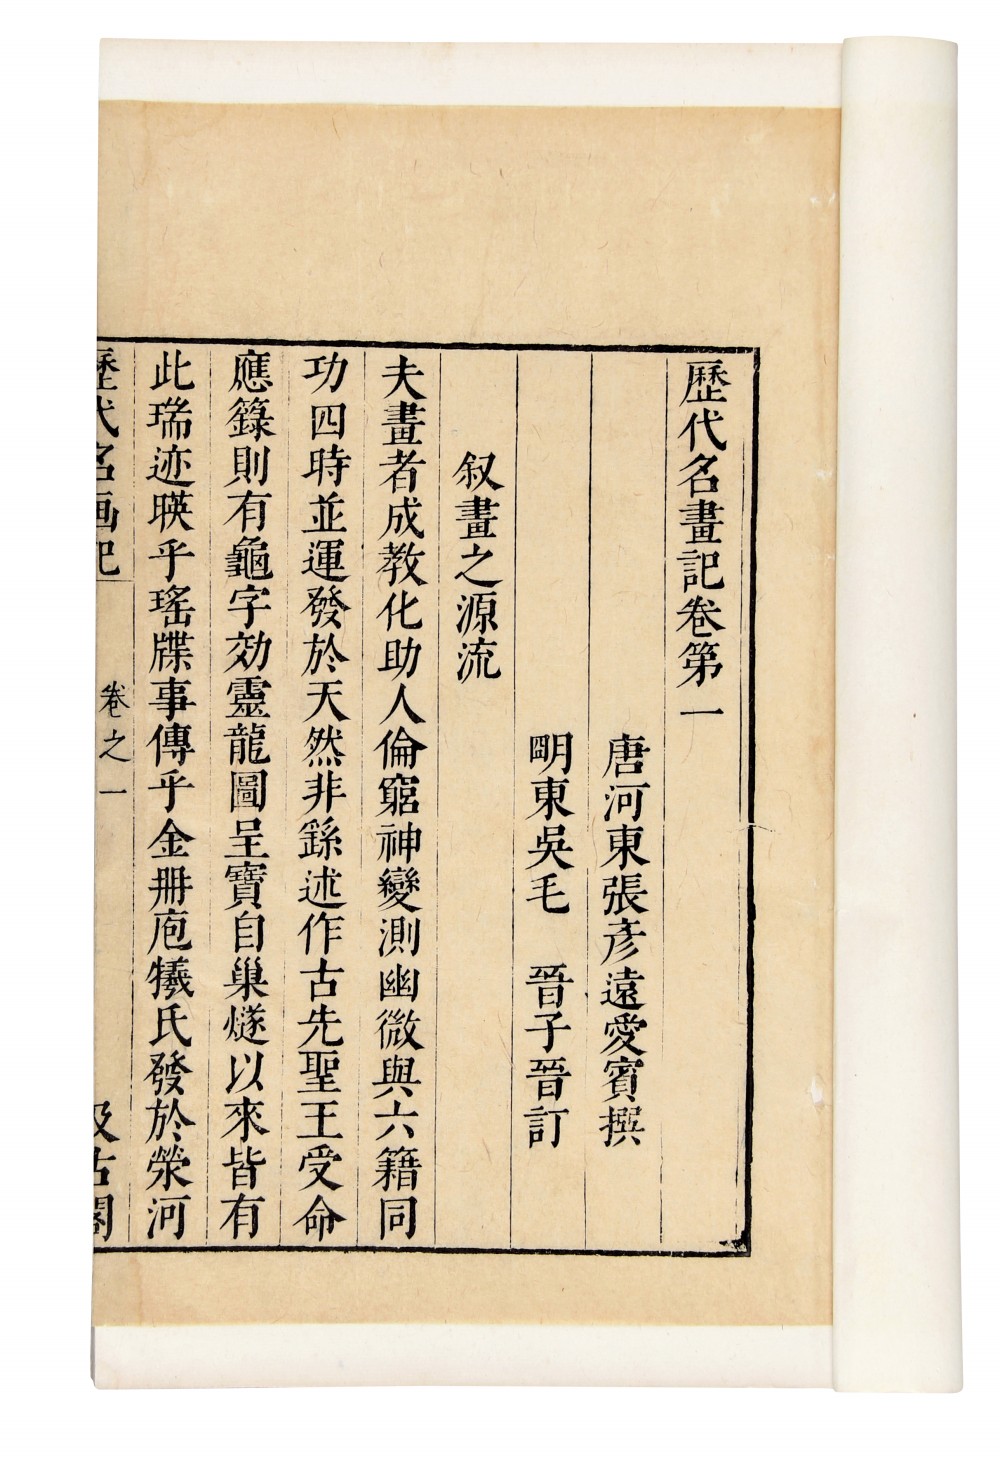 歷代名畫記卷第一
唐河東張彥遠愛賓撰
明東吳毛 晉子晉訂
叙畫之源流
夫畫者成教化助人倫窮神變測幽微與六籍同
功四時並運發於天然非繇述作古先聖王受命
應籙則有龜字効靈龍圖呈寶自巢燧以來皆有
此瑞迹暎乎瑤牒事傳乎金冊庖犧氏發於滎河
歷代名画記 卷之一 汲古閣